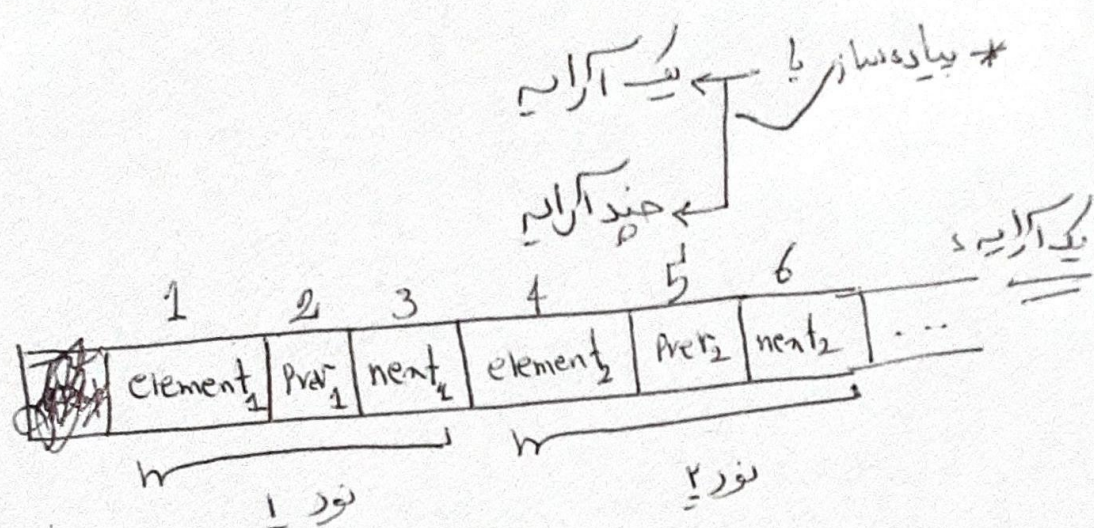 * پیاده‌ساز با ← یک آرایه
← چند آرایه
یک آرایه:
1 2 3 4 5 6
element1 Prev1 next1 element2 Prev2 next2 ...
نود ۱ نود ۲